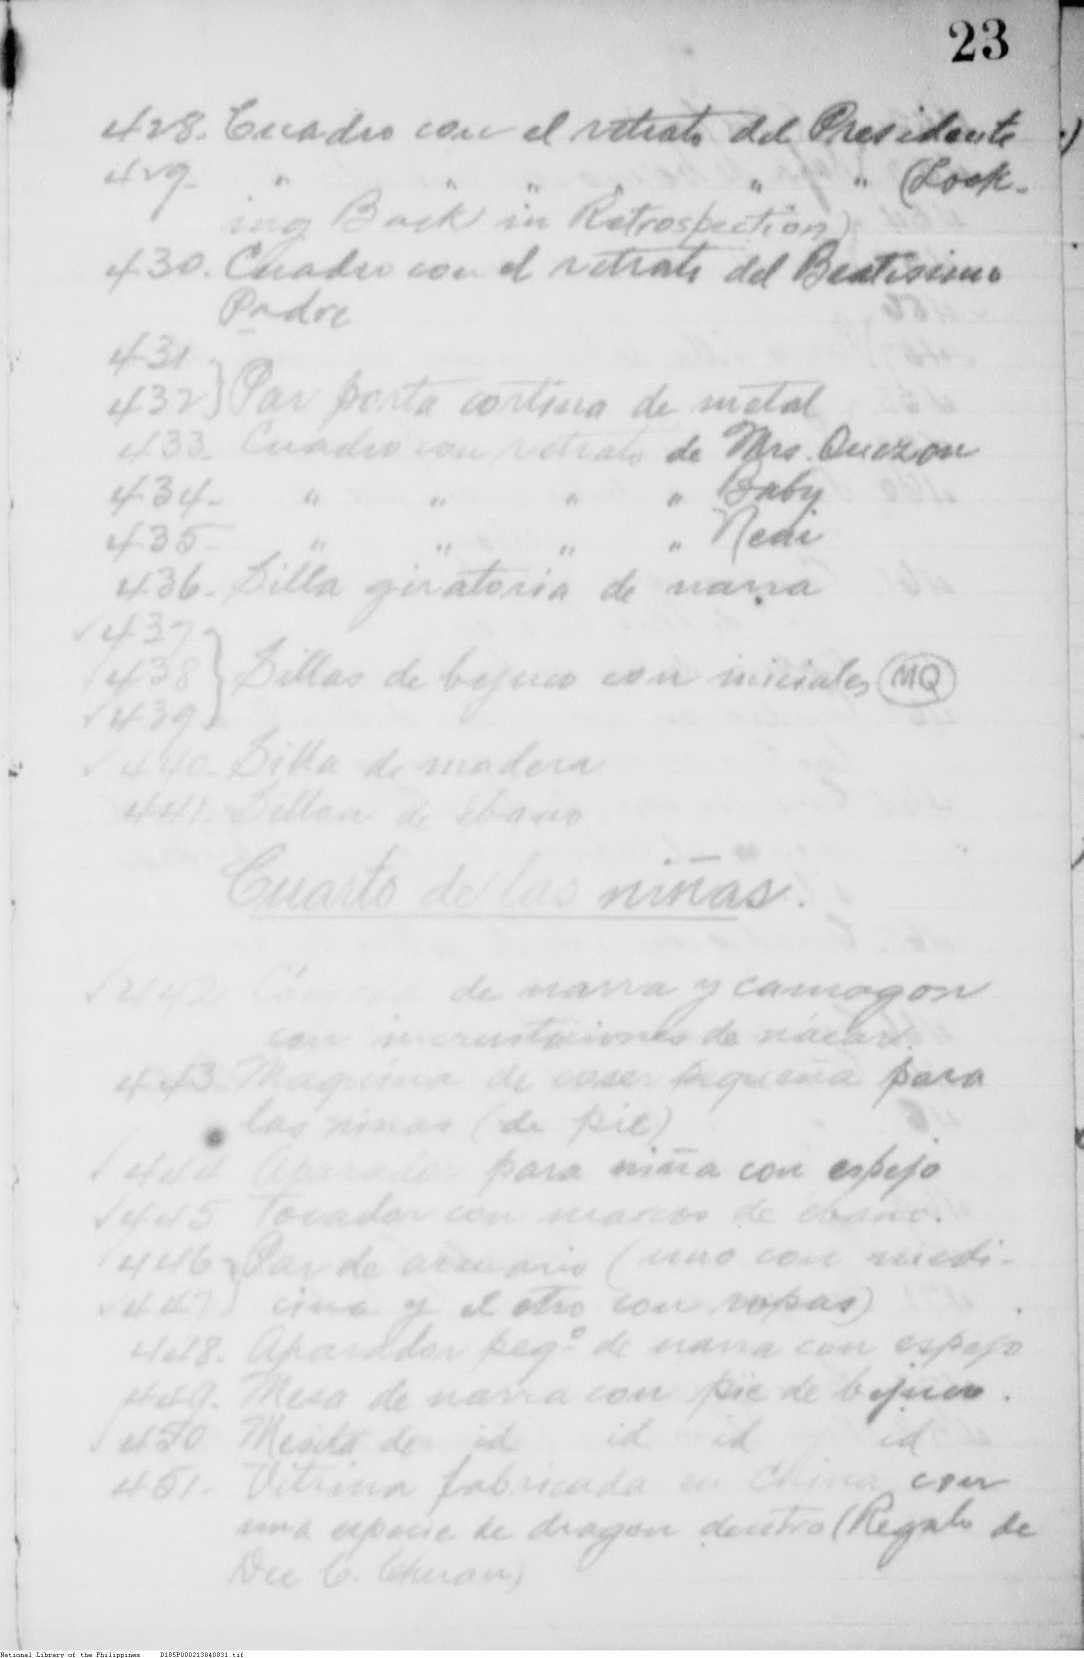 23
428. Cuadro con el retrato del Presidente
429. " " " " " " (Look-
ing Back in Retrospection)
430. Cuadro con el retrato del Beatisimo
Padre
431
432} Par porta cortina de metal
433. Cuadro con retrato de Mrs. Quezon
434. " " " " Baby
435. " " " " Neni
436. Silla giratoria de narra
✓437
✓438} Sillas de bejuco con iniciales MQ
✓439
✓440. Silla de madera
441. Sillon de ebano
Cuarto de las niñas.
✓442 Cómoda de narra y camagon
con incrustaciones de nácar.
443. Maquina de coser pequeña para
las niñas (de pie)
✓444 Aparador para niña con espejo
✓445 Tocador con marcos de ebano.
✓446} Par de armario (uno con medi-
✓447} cina y el otro con ropas)
448. Aparador peqº de narra con espejo
449. Mesa de narra con pie de bejuco.
✓450 Mesita de id id id id
451. Vitrina fabricada en China con
una especie de dragon dentro (Regalo de
Dee C. Chuan)
National Library of the Philippines D185P000213040031.tif